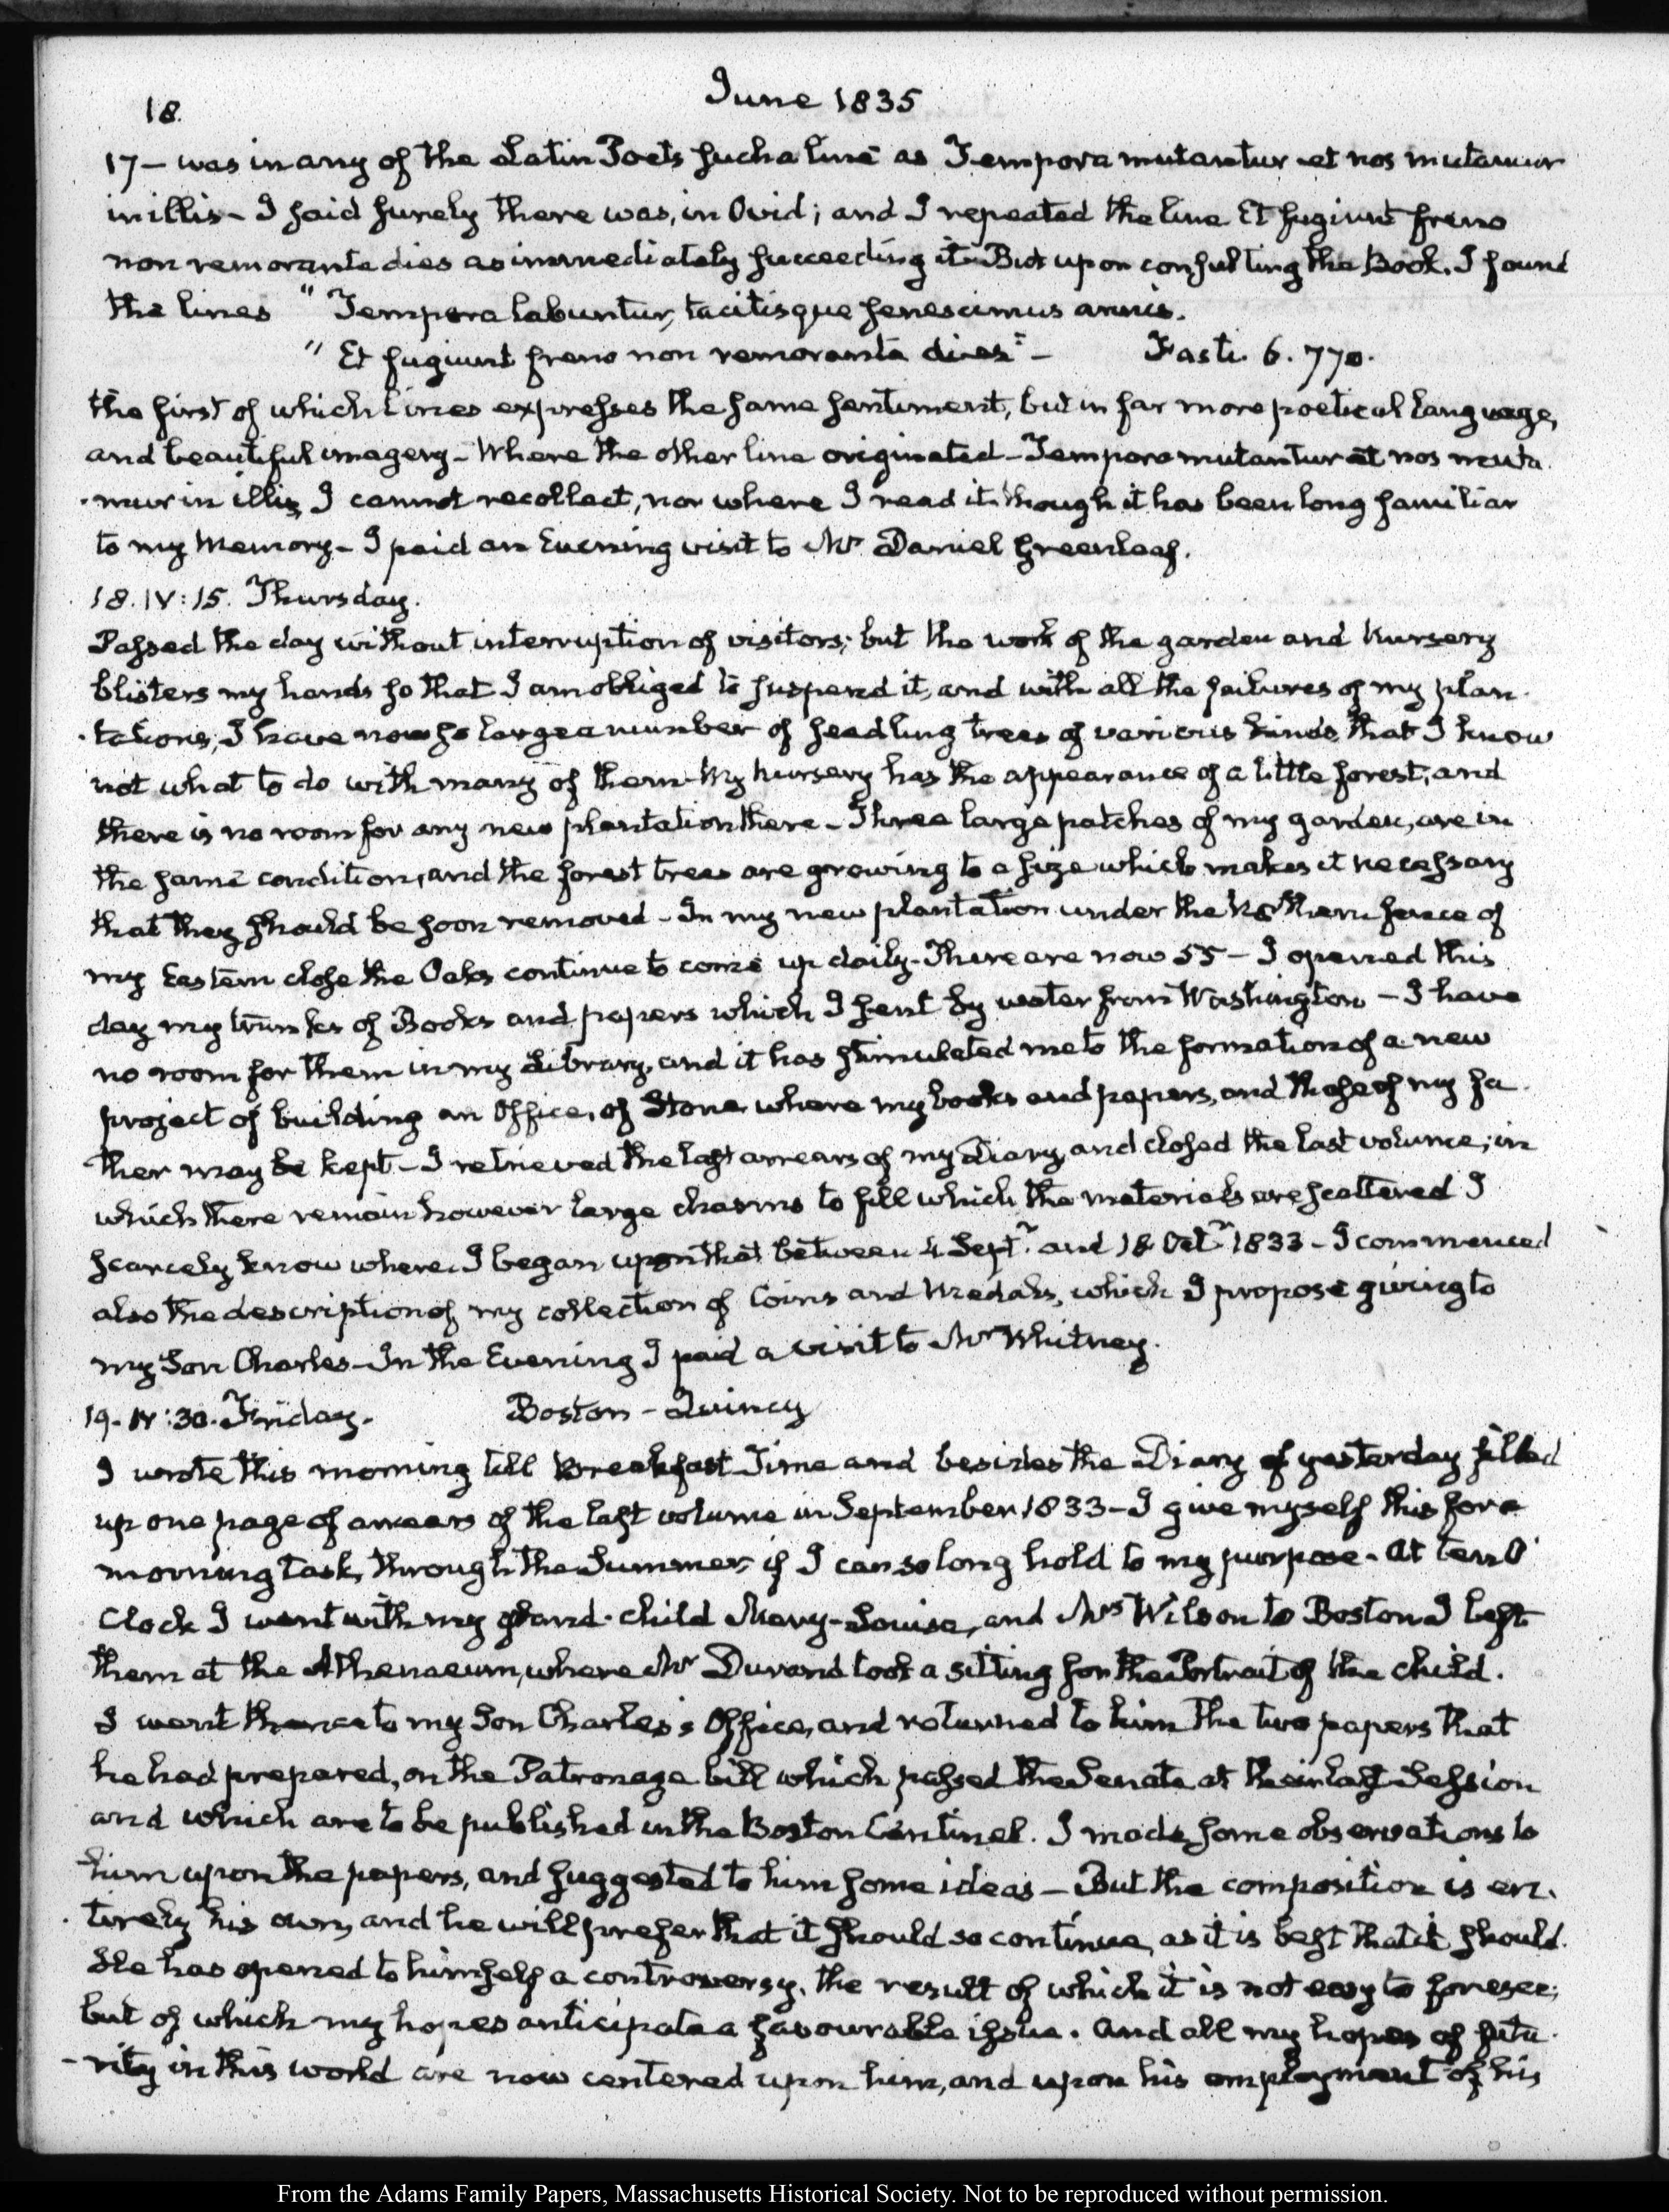 18.
June 1835
17 — was in any of the Latin Poets such a line as Tempora mutantur et nos mutamur
in illis – I said surely there was, in Ovid; and I repeated the line Et fugiunt freno
non remorante dies as immediately succeeding it – But upon consulting the Book. I found
the lines " Tempora labuntur, tacitisque senescimus annis.
" Et fugiunt freno non remorante dies" – Fasti. 6. 770.
the first of which lines expresses the same sentiment, but in far more poetical language,
and beautiful imagery – Where the other line originated – Tempora mutantur et nos muta-
-mur in illis, I cannot recollect, nor where I read it though it has been long familiar
to my Memory – I paid an Evening visit to Mr Daniel Greenleaf.
18. IV:15. Thursday.
Passed the day without interruption of visitors; but the work of the garden and Nursery
blisters my hands so that I am obliged to suspend it, and with all the failures of my plan-
-tations, I have now so large a number of seedling trees of various kinds, that I know
not what to do with many of them – My Nursery has the appearance of a little forest, and
there is no room for any new plantation there – Three large patches of my garden, are in
the same condition, and the forest trees are growing to a size which makes it necessary
that they should be soon removed – In my new plantation under the Northern fence of
my Eastern close the Oaks continue to come up daily – There are now 55 – I opened this
day my trunks of Books and papers which I sent by water from Washington – I have
no room for them in my Library, and it has stimulated me to the formation of a new
project of building an Office, of Stone where my books and papers, and those of my fa-
ther may be kept – I retrieved the last arrears of my Diary and closed the last volume; in
which there remain however large chasms to fill which the materials are scattered I
scarcely know where. I began upon that between 4 Septr. and 18 Octr. 1833 – I commenced
also the description of my collection of Coins and Medals, which I propose giving to
my Son Charles – In the Evening I paid a visit to Mr Whitney.
19. IV:30. Friday. Boston – Quincy
I wrote this morning till Breakfast Time and besides the Diary of yesterday filled
up one page of arrears of the last volume in September 1833 – I give myself this fore
morning task, through the Summer, if I can so long hold to my purpose – At ten O'
Clock I went with my grand-child Mary-Louisa, and Mrs Wilson to Boston I left
them at the Athenaeum, where Mr Durand took a sitting for the Portrait of the child.
I went thence to my Son Charles's Office, and returned to him the two papers that
he had prepared, on the Patronage bill which passed the Senate at their last Session
and which are to be published in the Boston Centinel. I made some observations to
him upon the papers, and suggested to him some ideas – But the composition is en-
-tirely his own, and he will prefer that it should so continue, as it is best that it should.
He has opened to himself a controversy, the result of which it is not easy to foresee;
but of which my hopes anticipate a favourable issue. And all my hopes of futu-
-rity in this world are now centered upon him, and upon his employment of his
From the Adams Family Papers, Massachusetts Historical Society. Not to be reproduced without permission.